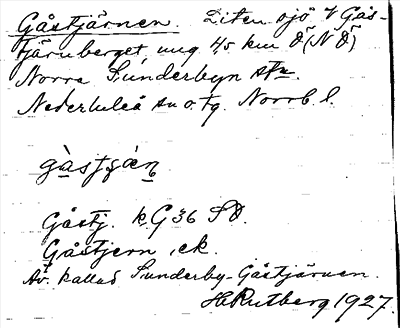 Gåstjärnen. Liten sjö V Gås-
tjärnberget, ung 4,5 km Ö (NÖ)
Norra Sunderbyn stn.
Nederluleå sn o. tg. Norrb. l.
gàstʃæn
Gåstj. k. G 36 SO.
Gåstjern, ek.
Äv. kallad Sunderby-Gåstjärnen.
H. Rutberg 1927.